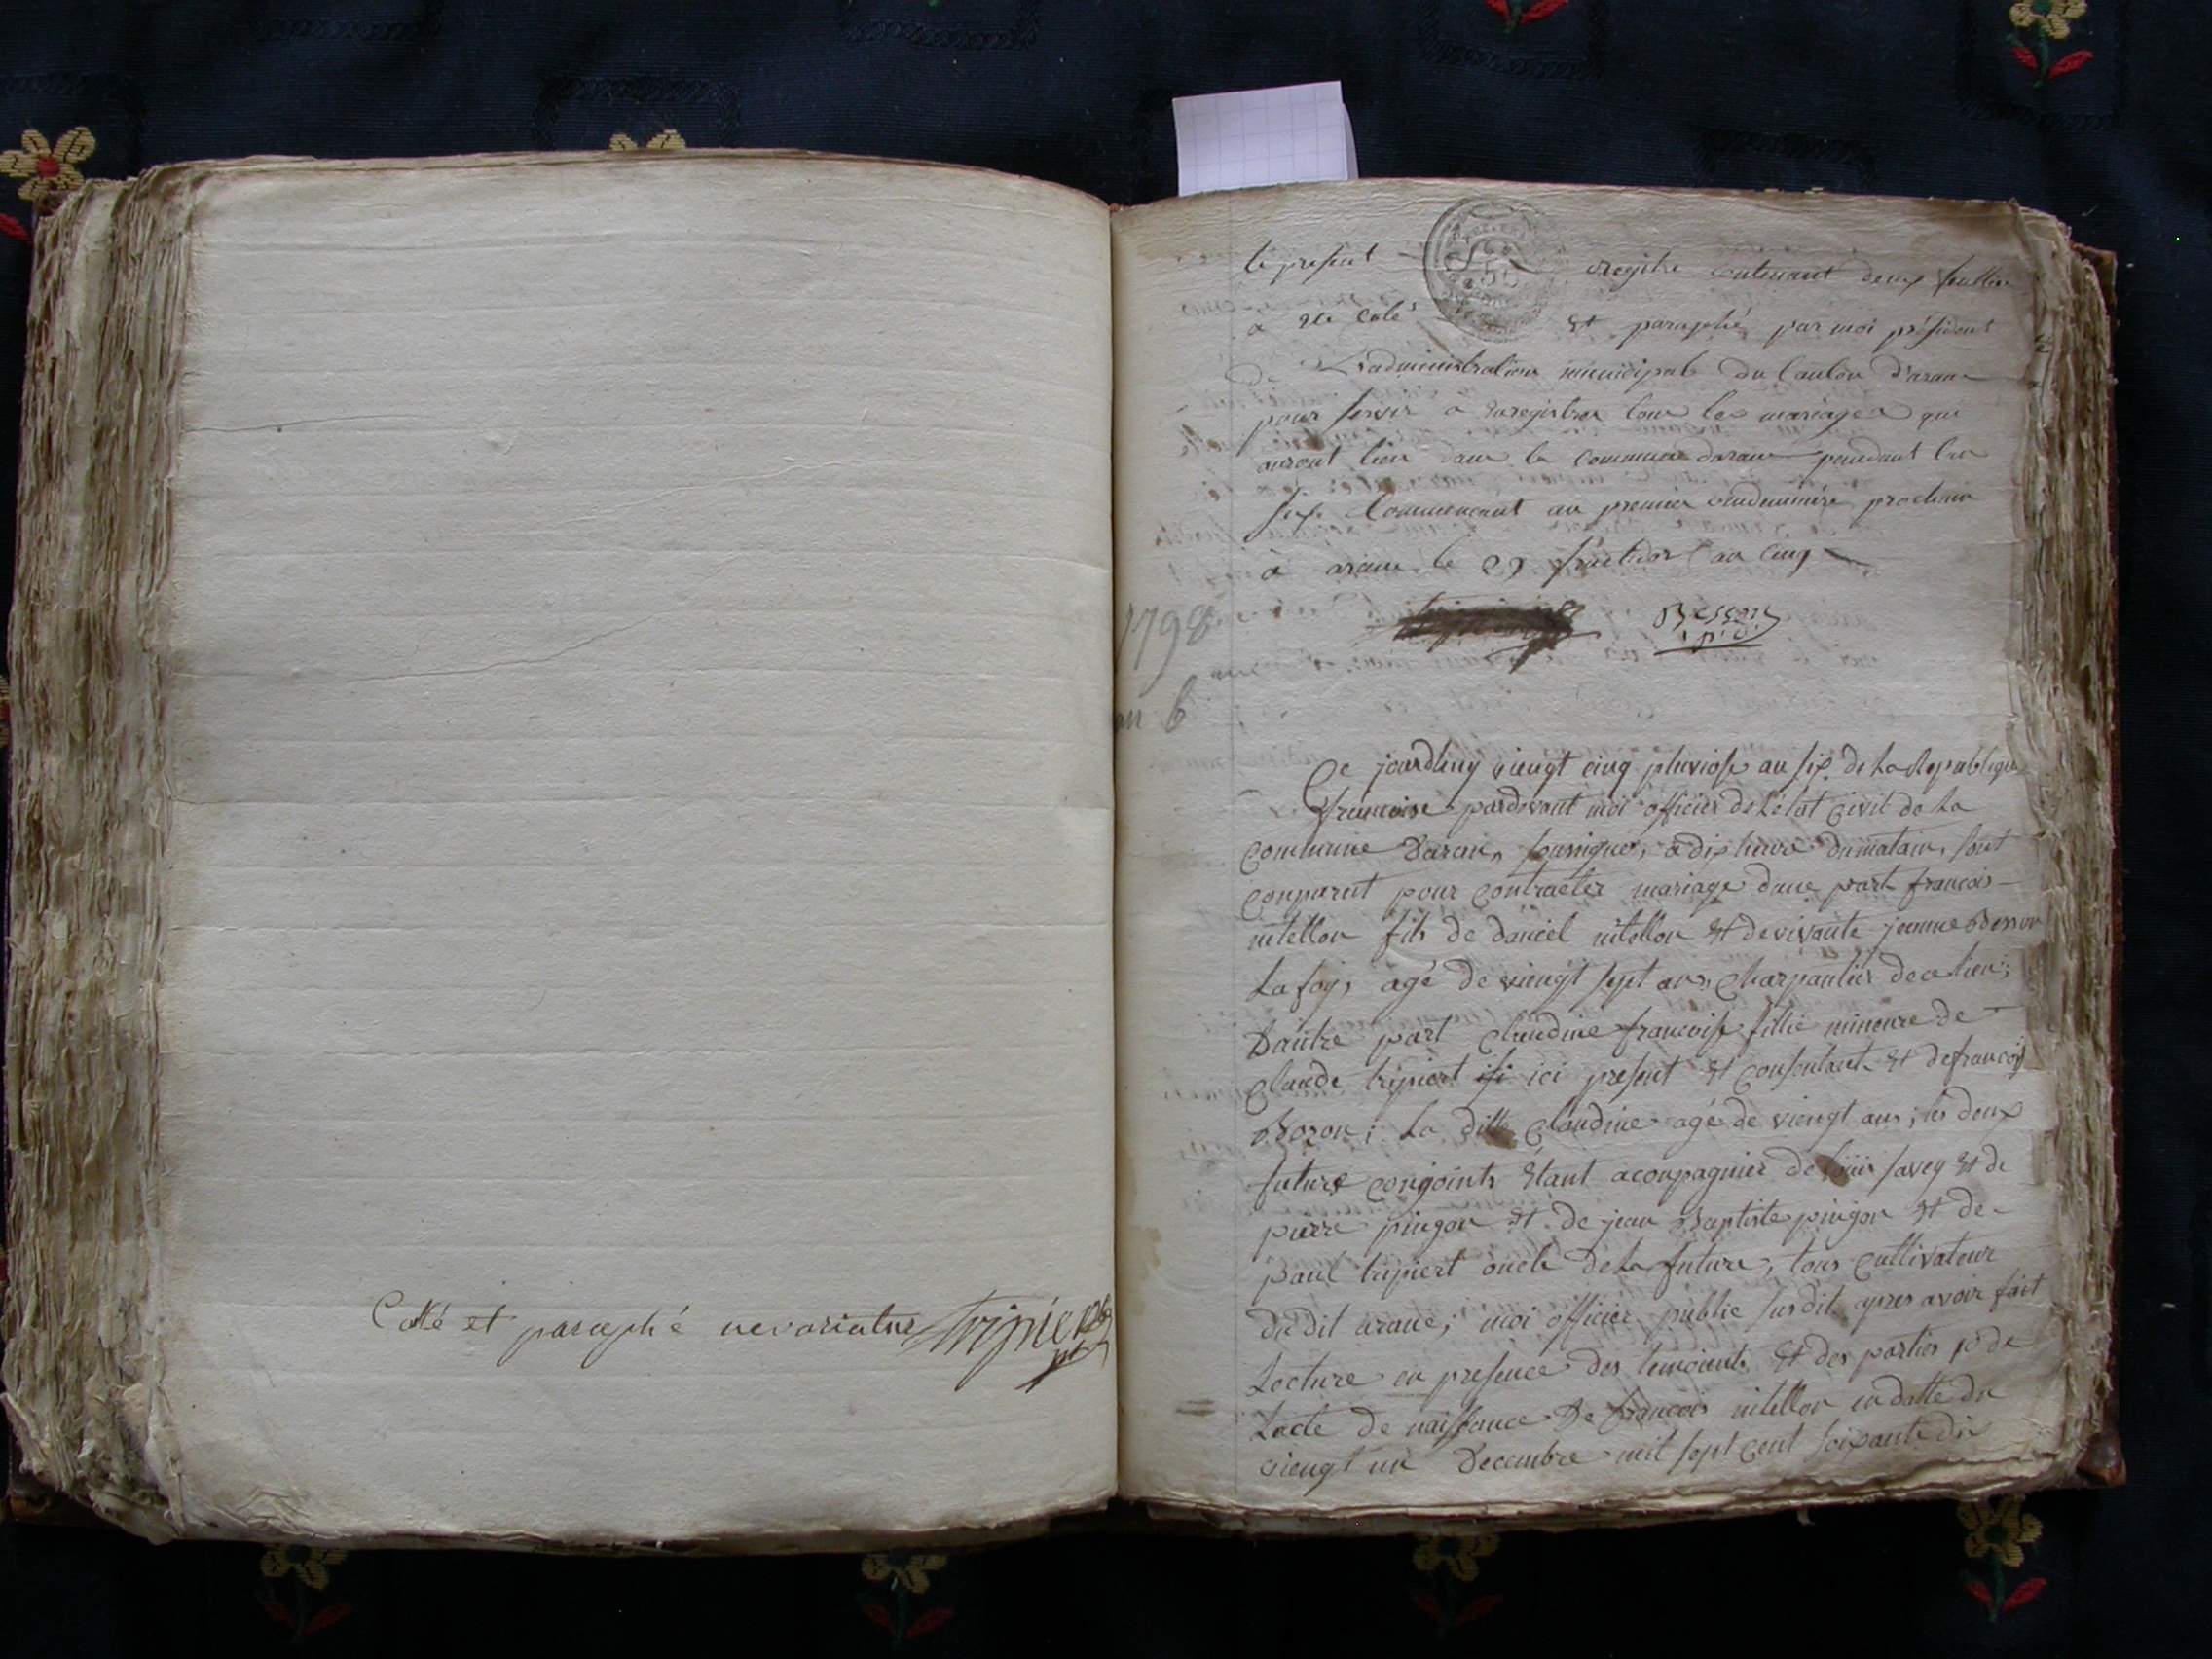 Cotté et paraphé ne varietur Tripier
le present registre contenant deux feuilles
a été coté et paraphé par moi président
De L'administration municipale du Canton d'aranc
pour servir a enregistrer tous les mariages qui
auront lieu dans la commune daranc pendant l'an
six Commencant au premier vendemiaire prochain
à aranc le 29 fructidor an cinq
Besson
1798
an 6
Ce jourdhuy viengt cinq pluviose an six de La Republique
francoise pardevant moi officier de Létat Civil de La
Commune Daranc, sousigner, a dix heure dumatain, sont
Conparut pour Contracter mariage dune part francois
nitellon fils de daniel nitellon et devivante jeanne Besson
La foy, agé de viengt sept ans, Charpantier de ce lieu;
Dautre part Claudine francoise fillie mineure de
Claude tripiert isi ici present et Consentant et defrancois
Bozon; La ditte Claudine agé de viengt ans; les deux
future conjoints étant aconpagnier de Louis savey et de
pierre pingon et de jean Baptiste pingon et de
paul tripiert oncle de La future, tous Cultivateur
du dit aranc; moi officier public susdit apres avoir fait
Lecture en presence des temoients et des parties 1o de
Lacte de naissance De francois nitellon en datte du
viengt un Decembre mil sept Cent soixante dix